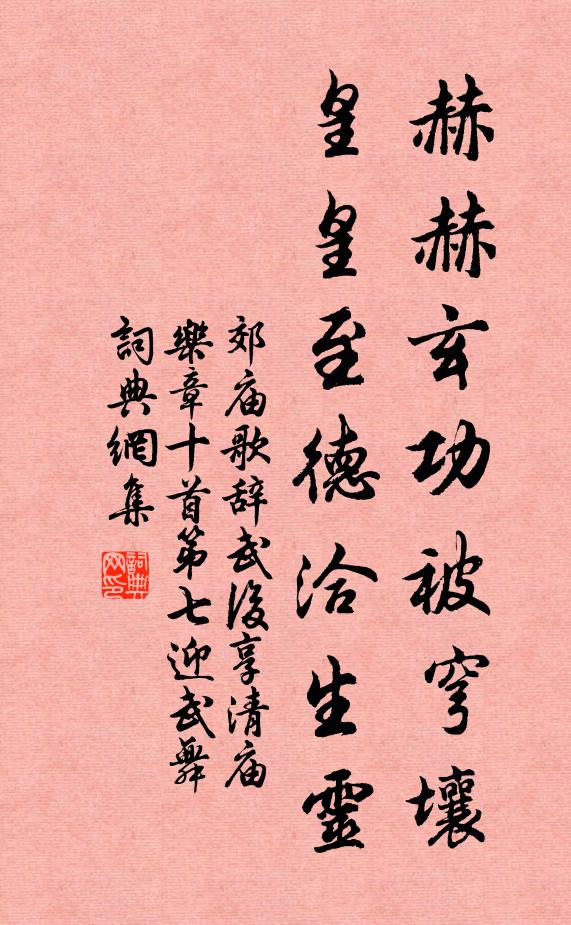 赫赫玄功被穹壤
皇皇至德洽生靈
郊庙歌辞武後享清庙
樂章十首第七迎武舞
詞典網集
詞典网印